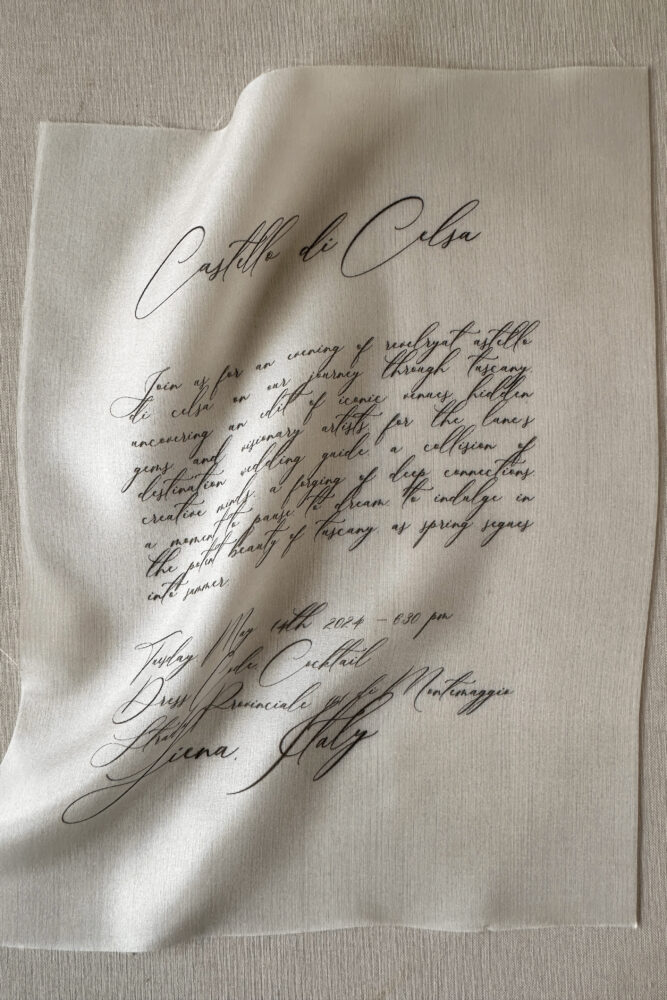 Castello di Celsa
Join us for an evening of revelryat astello
di celsa on our journey through tuscany.
uncovering an edit of iconic venues hidden
gems and visionary artists for the lane's
destination wedding guide. a collision of
creative minds. a forging of deep connections.
a moment to pause to dream. to indulge in
the potent beauty of tuscany as spring segues
into summer.
Tuesday May 14th 2024 - 630 pm
Dress Code. Cocktail
Strada Provinciale di Montemaggio
Siena. Italy